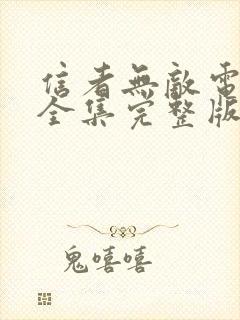 信者無敵電
全集完整版
鬼嘻嘻